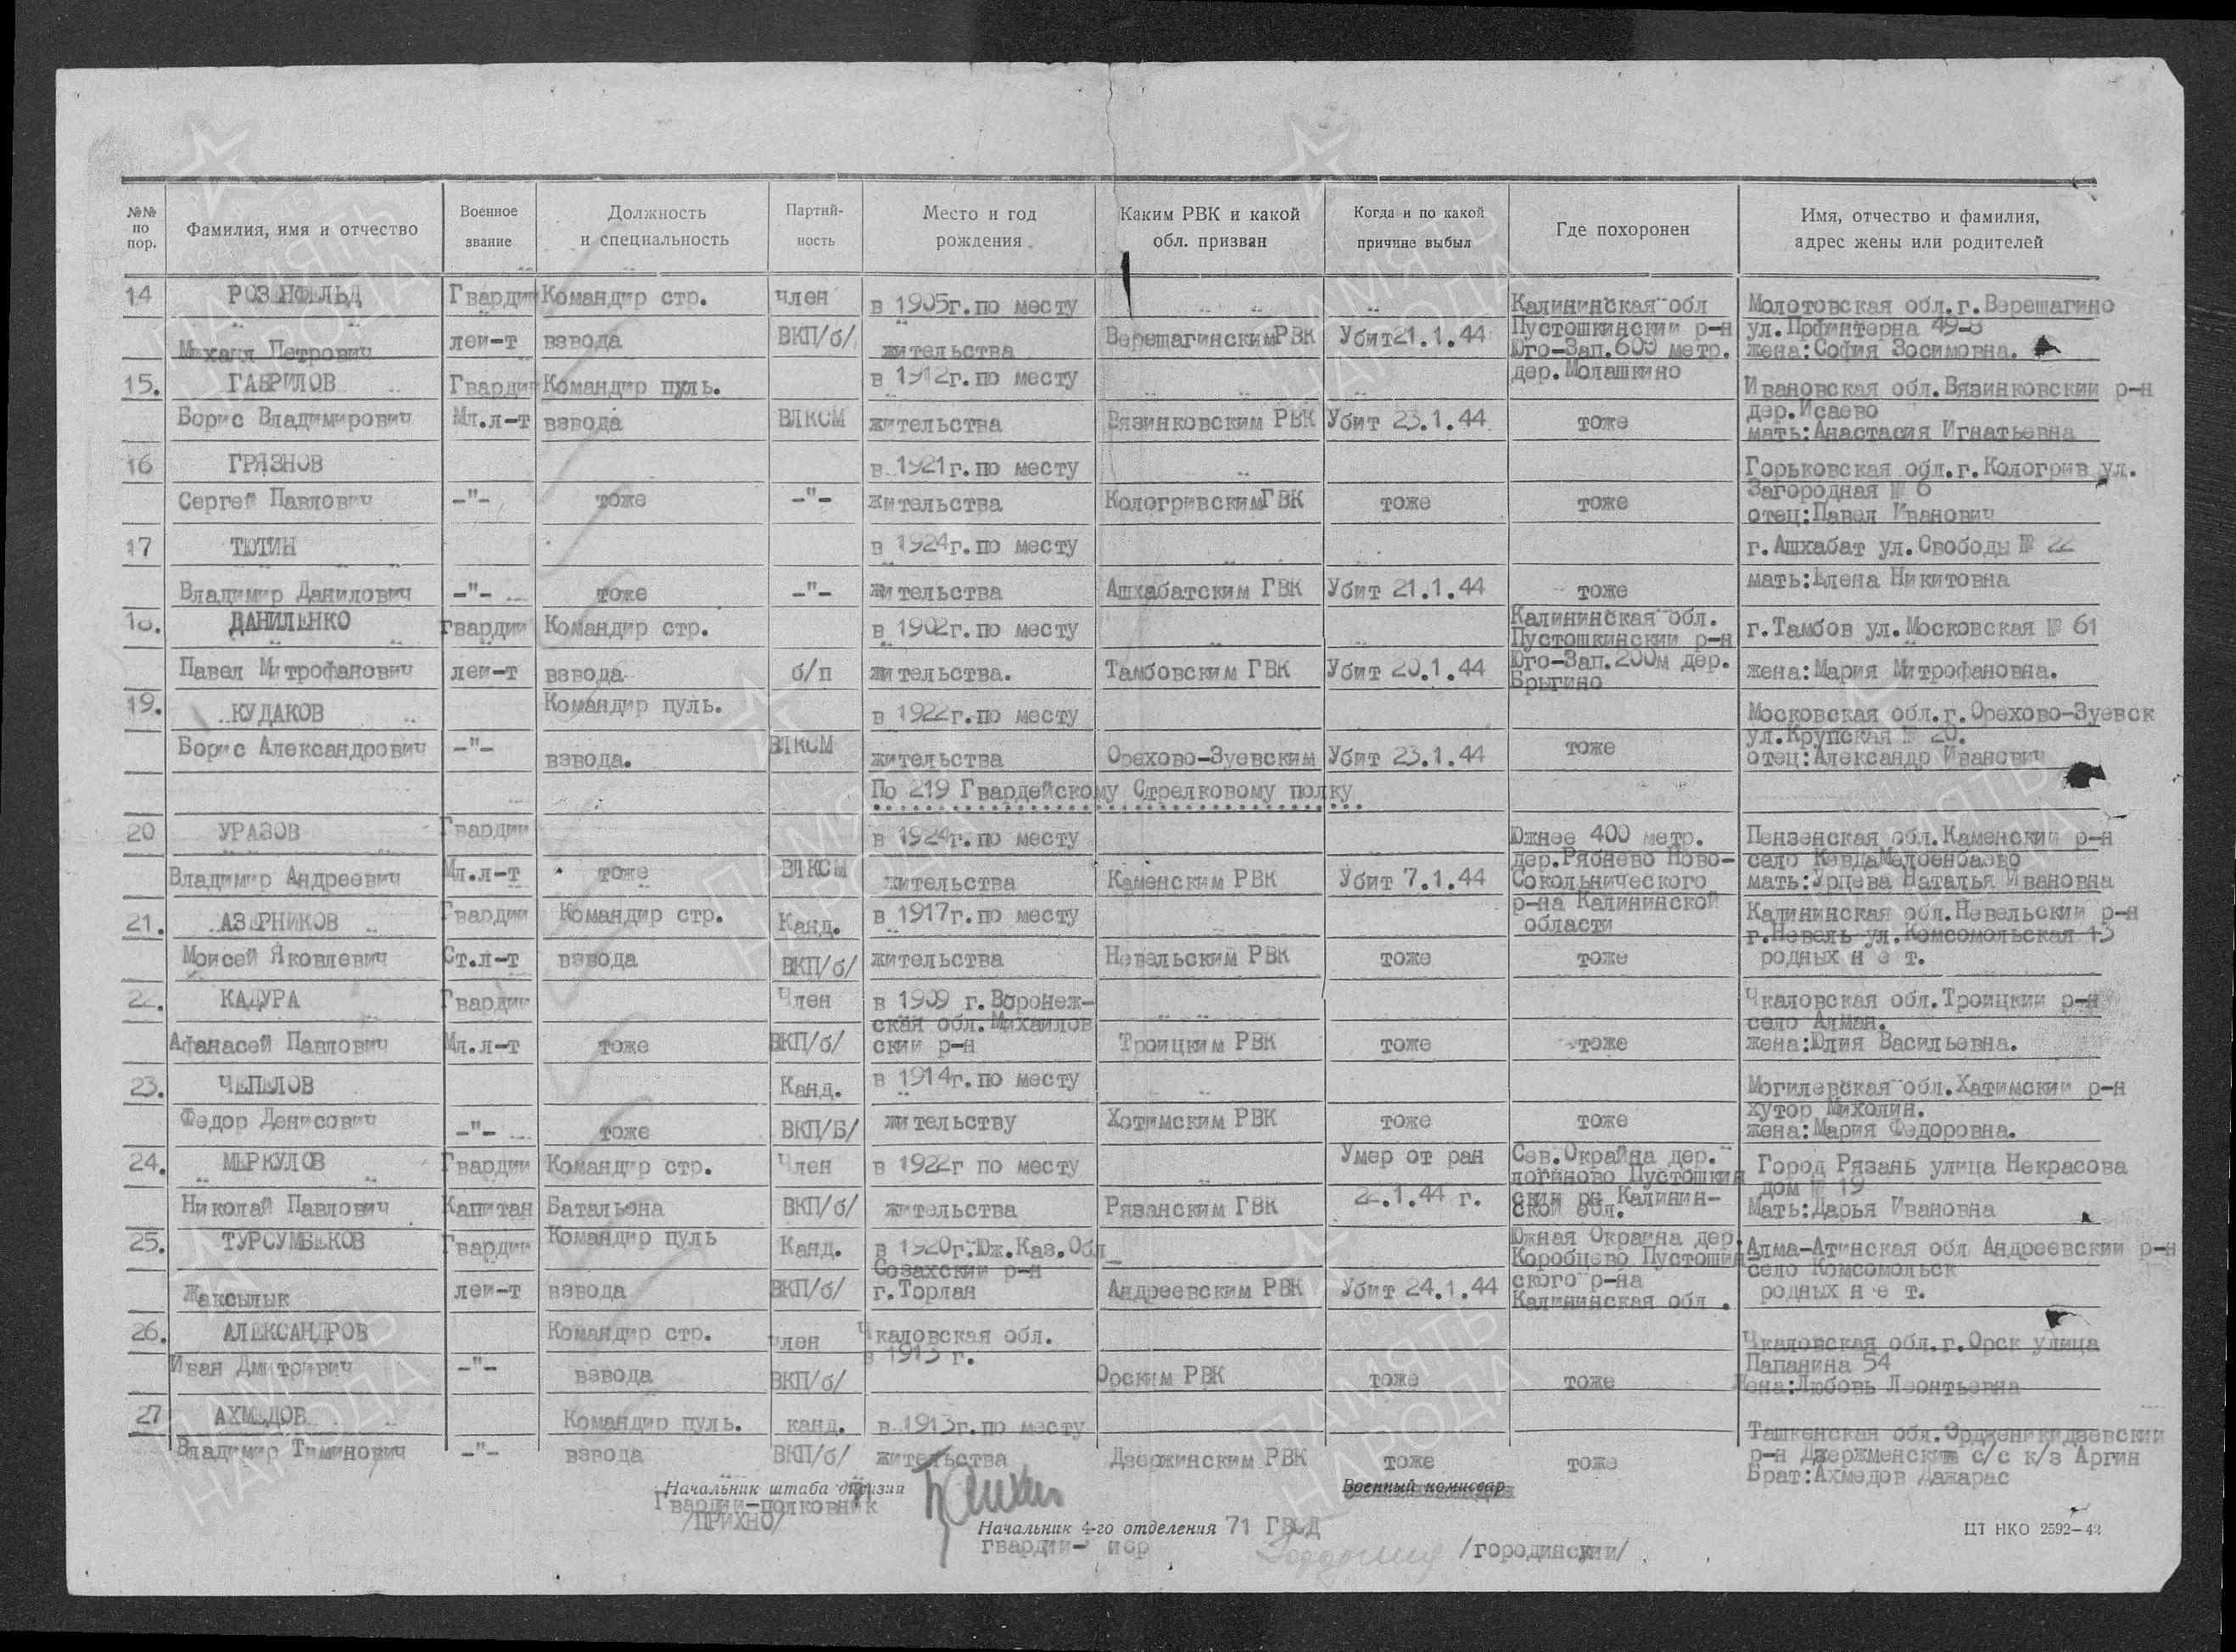 №№ по пор.
Фамилия, имя и отчество
Военное звание
Должность и специальность
Партий-ность
Место и год рождения
Каким РВК и какой обл. призван
Когда и по какой причине выбыл
Где похоронен
Имя, отчество и фамилия, адрес жены или родителей
14 РОЗЕНФЕЛЬД Гвардии Командир стр. член в 1905г.по месту Калининская обл Молотовская обл.г.Верещагино
Пустошкинский р-н ул.Прфинтерна 49-8
Михаил Петрович лей-т взвода ВКП/б/ жительства Верещагинским РВК Убит 21.1.44 Юго-Зап.600 метр. жена:София Зосимовна.
15. ГАВРИЛОВ Гвардии Командир пуль. в 1912г.по месту дер.Молашкино Ивановская обл.Вязинковский р-н
дер.Исаево
Борис Владимирович Мл.л-т взвода ВЛКСМ жительства Вязинковским РВК Убит 23.1.44 тоже мать:Анастасия Игнатьевна
16 ГРЯЗНОВ в 1921г.по месту Горьковская обл.г.Кологрив ул.
Загородная № 6
Сергей Павлович -"- тоже -"- жительства Кологривским ГВК тоже тоже отец:Павел Иванович
17 ТЮТИН в 1924г.по месту г.Ашхабат ул.Свободы № 22
Владимир Данилович -"- тоже -"- жительства Ашхабатским ГВК Убит 21.1.44 тоже мать:Елена Никитовна
18. ДАНИЛЕНКО гвардии Командир стр. в 1902г.по месту Калининская обл. г.Тамбов ул.Московская № 61
Пустошкинский р-н
Павел Митрофанович лей-т взвода б/п жительства. Тамбовским ГВК Убит 20.1.44 Юго-Зап.200м дер. жена:Мария Митрофановна.
Брыгино
19. КУДАКОВ Командир пуль. в 1922г.по месту Московская обл.г.Орехово-Зуевск
ул.Крупская № 20.
Борис Александрович -"- взвода. ВЛКСМ жительства Орехово-Зуевским Убит 23.1.44 тоже отец:Александр Иванович
По 219 Гвардейскому Стрелковому полку
20 УРАЗОВ Гвардии в 1924г.по месту Южнее 400 метр. Пензенская обл.Каменский р-н
дер.Рябнево Ново- село
Владимир Андреевич Мл.л-т тоже ВЛКСМ жительства Каменским РВК Убит 7.1.44 Сокольнического мать:Урцева Наталья Ивановна
р-на Калининской
21. АЗЕРНИКОВ Гвардии Командир стр. Канд. в 1917г.по месту области Калининская обл.Невельский р-н
г.Невель ул.Комсомольская 13
Моисей Яковлевич Ст.л-т взвода ВКП/б/ жительства Невельским РВК тоже тоже родных н е т.
22. КАДУРА Гвардии Член в 1909 г.Воронеж- Чкаловская обл.Троицкий р-н
ская обл.Михайлов село Алман.
Афанасей Павлович Мл.л-т тоже ВКП/б/ ский р-н Троицким РВК тоже тоже жена:Юлия Васильевна.
23. ЧЕПЕЛОВ Канд. в 1914г.по месту Могилевская обл.Хатимский р-н
хутор Михолин.
Федор Денисович -"- тоже ВКП/Б/ жительству Хотимским РВК тоже тоже жена:Мария Федоровна.
24. МЕРКУЛОВ Гвардии Командир стр. Член в 1922г по месту Умер от ран Сев.Окрайна дер. Город Рязань улица Некрасова
логиново Пустошкин дом № 19
Николай Павлович Капитан Батальона ВКП/б/ жительства Рязанским ГВК 22.1.44 г. ский рн Калинин- Мать:Дарья Ивановна
ской обл.
25. ТУРСУМБЕКОВ Гвардии Командир пуль Канд. в 1920г.Юж.Каз.Обл Южная Окраина дер. Алма-Атинская обл Андреевский р-н
Созахский р-н Коробцево Пустошин село Комсомольск
Жаксылык лей-т взвода ВКП/б/ г.Торлан Андреевским РВК Убит 24.1.44 ского р-на родных н е т.
Калининская обл .
26. АЛЕКСАНДРОВ Командир стр. член Чкаловская обл. Чкаловская обл.г.Орск улица
в 1913 г. Папанина 54
Иван Дмитривич -"- взвода ВКП/б/ Орским РВК тоже тоже Жена:Любовь Леонтьевна
27 АХМЕДОВ Командир пуль. канд. в 1913г.по месту Ташкенская обл.Орджоникидзевский
Владимир Тиминович -"- взвода ВКП/б/ жительства Дзержинским РВК тоже тоже р-н Джержменский с/с к/з Аргин
Брат:Ахмедов Дажарас
Начальник штаба дивизии
Гвардии-полковник
/ПРИХНО/
Военный комиссар
Начальник 4-го отделения 71 ГВСД
гвардии-
/городинский/
ЦТ НКО 2592-42
ПАМЯТЬ НАРОДА